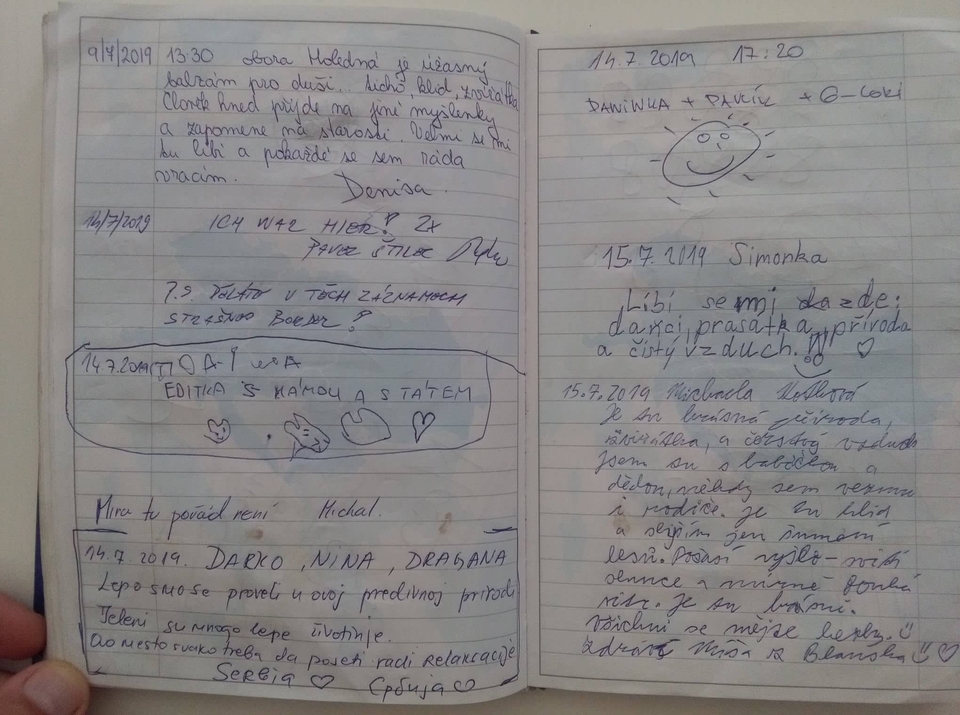 9/7/2019 13:30 obora Holedná je úžasný
balzám pro duši... ticho, klid, zvířátka
Človek hned přijde na jiné myšlenky
a zapomene na starosti. Velmi se mi
tu líbí a pokaždé se sem ráda
vracám.
Denisa.
14/7/2019 ICH WAR HIER! 2x
PAVEL
P.S. V TĚCH ZÁZNAMOCH
BORDEL!
14.7.2019
EDITKA S MÁMOU A S TÁTEM
Mira tu pořád není Michal.
14.7.2019. DARKO, NINA, DRAGANA
Lepo smo se proveli u ovoj predivnoj prirodi
Jeleni su mnogo lepe životinje.
Ovo mesto svako treba da poseti radi relaksacije
Serbia ♡ Србија ♡
14.7.2019 17:20
DANIWKA + PAVLÍK + G-LOKI
15.7.2019 Simonka
Líbí se mi zde:
daňci, prasátka, příroda
a čistý vzduch.!!! ♡
15.7.2019 Michaela
Je tu krásná příroda,
zvířátka, a čerstvý vzduch
jsem tu s babičkou a
dědou, někdy sem vezmu
i rodiče. Je tu klid
a slyším jen šumění
lesů. Počasí vyšlo - svítí
slunce a mírně fouká
vítr. Je tu krásně.
Všichni se mějte hezky.
Zdraví Míša z Blanska ♡